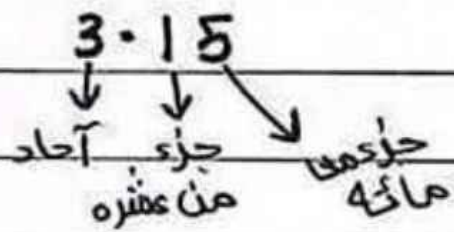 3.15
آحاد
جزء
من عشره
جزء من
مائه